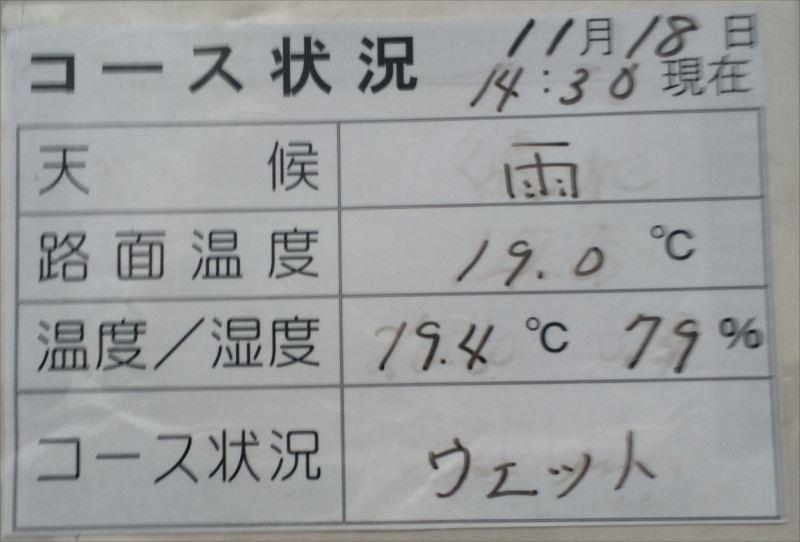 コース状況 11月18日
14:30現在
天候 雨
路面温度 19.0 ℃
温度／湿度 19.4 ℃ 79 %
コース状況 ウェット